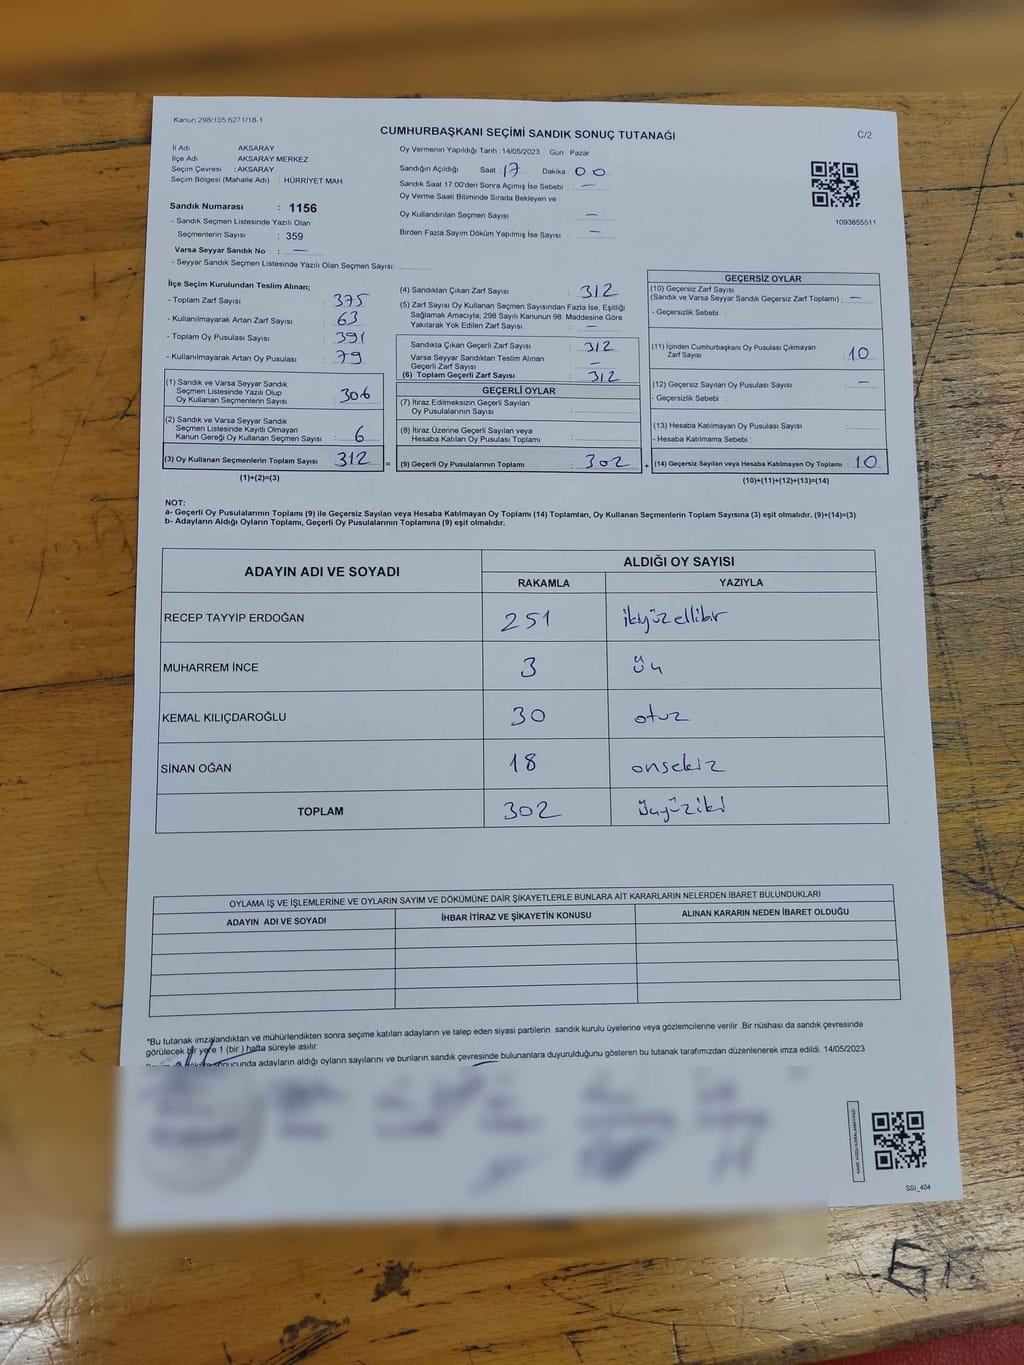 Kanun:298/105.6271/18-1
CUMHURBAŞKANI SEÇİMİ SANDIK SONUÇ TUTANAĞI
C/2
İl Adı AKSARAY
İlçe Adı AKSARAY MERKEZ
Seçim Çevresi : AKSARAY
Seçim Bölgesi (Mahalle Adı) : HÜRRİYET MAH.
Sandık Numarası : 1156
- Sandık Seçmen Listesinde Yazılı Olan
Seçmenlerin Sayısı : 359
Varsa Seyyar Sandık No : —
- Seyyar Sandık Seçmen Listesinde Yazılı Olan Seçmen Sayısı:
Oy Vermenin Yapıldığı Tarih : 14/05/2023 Gün : Pazar
Sandığın Açıldığı Saat : 17 Dakika : 00
Sandık Saat 17:00'den Sonra Açımış İse Sebebi : —
Oy Verme Saati Bitiminde Sırada Bekleyen ve
Oy Kullandırılan Seçmen Sayısı : —
Birden Fazla Sayım Döküm Yapılmış İse Sayısı : —
1093855511
İlçe Seçim Kurulundan Teslim Alınan;
- Toplam Zarf Sayısı : 375
- Kullanılmayarak Artan Zarf Sayısı : 63
- Toplam Oy Pusulası : 391
- Kullanılmayarak Artan Oy Pusulası : 79
(1) Sandık ve Varsa Seyyar Sandık
Seçmen Listesinde Yazılı Olup
Oy Kullanan Seçmenlerin Sayısı : 306
(2) Sandık ve Varsa Seyyar Sandık
Seçmen Listesinde Kayıtlı Olmayan
Kanun Gereği Oy Kullanan Seçmen Sayısı : 6
(3) Oy Kullanan Seçmenlerin Toplam Sayısı : 312
(1)+(2)=(3)
(4) Sandıktan Çıkan Zarf Sayısı : 312
(5) Zarf Sayısı Oy Kullanan Seçmen Sayısından Fazla İse, Eşitliği
Sağlamak Amacıyla; 298 Sayılı Kanunun 98. Maddesine Göre
Yakılarak Yok Edilen Zarf Sayısı : —
Sandıkta Çıkan Geçerli Zarf Sayısı : 312
Varsa Seyyar Sandıktan Teslim Alınan
Geçerli Zarf Sayısı : —
(6) Toplam Geçerli Zarf Sayısı : 312
GEÇERLİ OYLAR
(7) İtiraz Edilmeksizin Geçerli Sayılan
Oy Pusulalarının Sayısı :
(8) İtiraz Üzerine Geçerli Sayılan veya
Hesaba Katılan Oy Pusulası Toplamı :
= (9) Geçerli Oy Pusulalarının Toplamı : 302
GEÇERSİZ OYLAR
(10) Geçersiz Zarf Sayısı
(Sandık ve Varsa Seyyar Sandık Geçersiz Zarf Toplamı) : —
- Geçersizlik Sebebi :
(11) İçinden Cumhurbaşkanı Oy Pusulası Çıkmayan
Zarf Sayısı : 10
(12) Geçersiz Sayılan Oy Pusulası Sayısı : —
- Geçersizlik Sebebi :
(13) Hesaba Katılmayan Oy Pusulası Sayısı :
- Hesaba Katılmama Sebebi :
+ (14) Geçersiz Sayılan veya Hesaba Katılmayan Oy Toplamı : 10
(10)+(11)+(12)+(13)=(14)
NOT:
a- Geçerli Oy Pusulalarının Toplamı (9) ile Geçersiz Sayılan veya Hesaba Katılmayan Oy Toplamı (14) Toplamları, Oy Kullanan Seçmenlerin Toplam Sayısına (3) eşit olmalıdır. (9)+(14)=(3)
b- Adayların Aldığı Oyların Toplamı, Geçerli Oy Pusulalarının Toplamına (9) eşit olmalıdır.
ADAYIN ADI VE SOYADI ALDIĞI OY SAYISI
RAKAMLA YAZIYLA
RECEP TAYYİP ERDOĞAN 251 ikiyüzellibir
MUHARREM İNCE 3 üç
KEMAL KILIÇDAROĞLU 30 otuz
SİNAN OĞAN 18 onsekiz
TOPLAM 302 üçyüziki
OYLAMA İŞ VE İŞLEMLERİNE VE OYLARIN SAYIM VE DÖKÜMÜNE DAİR ŞİKAYETLERLE BUNLARA AİT KARARLARIN NELERDEN İBARET BULUNDUKLARI
ADAYIN ADI VE SOYADI İHBAR İTİRAZ VE ŞİKAYETİN KONUSU ALINAN KARARIN NEDEN İBARET OLDUĞU
*Bu tutanak imzalandıktan ve mühürlendikten sonra seçime katılan adayların ve talep eden siyasi partilerin sandık kurulu üyelerine veya gözlemcilerine verilir .Bir nüshası da sandık çevresinde
görülecek bir yere 1 (bir ) hafta süreyle asılır.
adayların aldığı oyların sayılarını ve bunların sandık çevresinde bulunanlara duyurulduğunu gösteren bu tutanak tarafımızdan düzenlenerek imza edildi. 14/05/2023
SSI_404